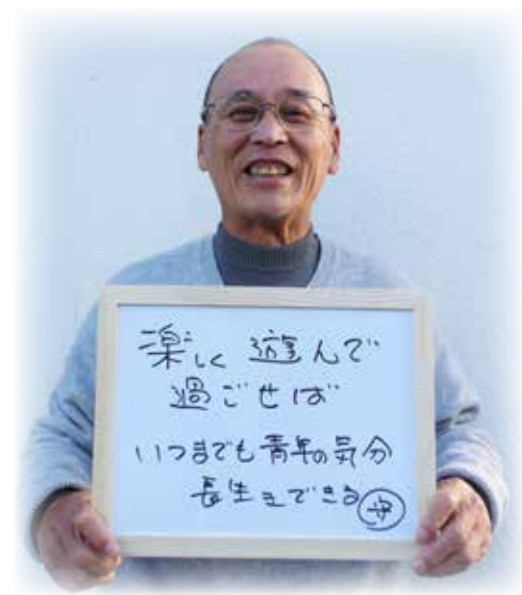 楽しく 遊んで
過ごせば
いつまでも青年の気分
長生きできる 守